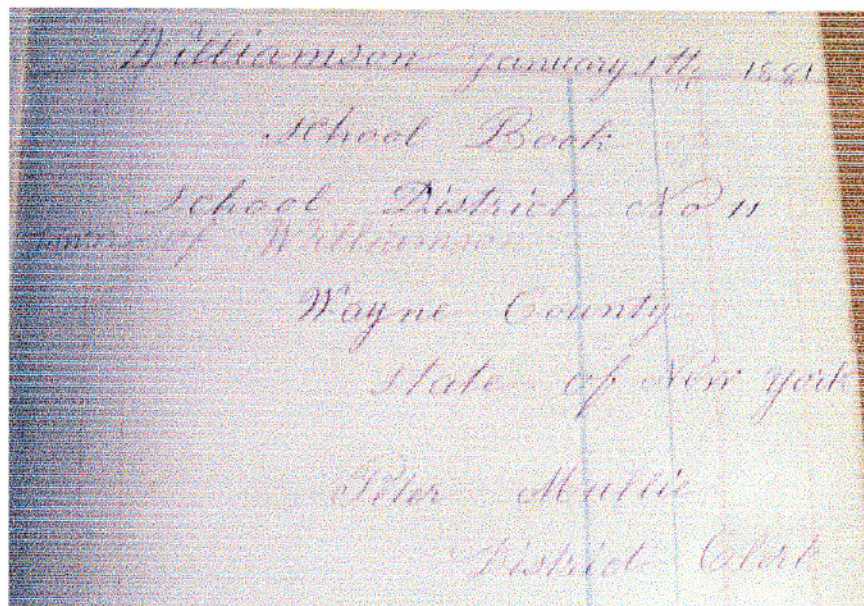 Williamson January 5th 1881
School Book
School District No 11
of Williamson
Wayne County
State of New York
Peter Mullie
District Clerk